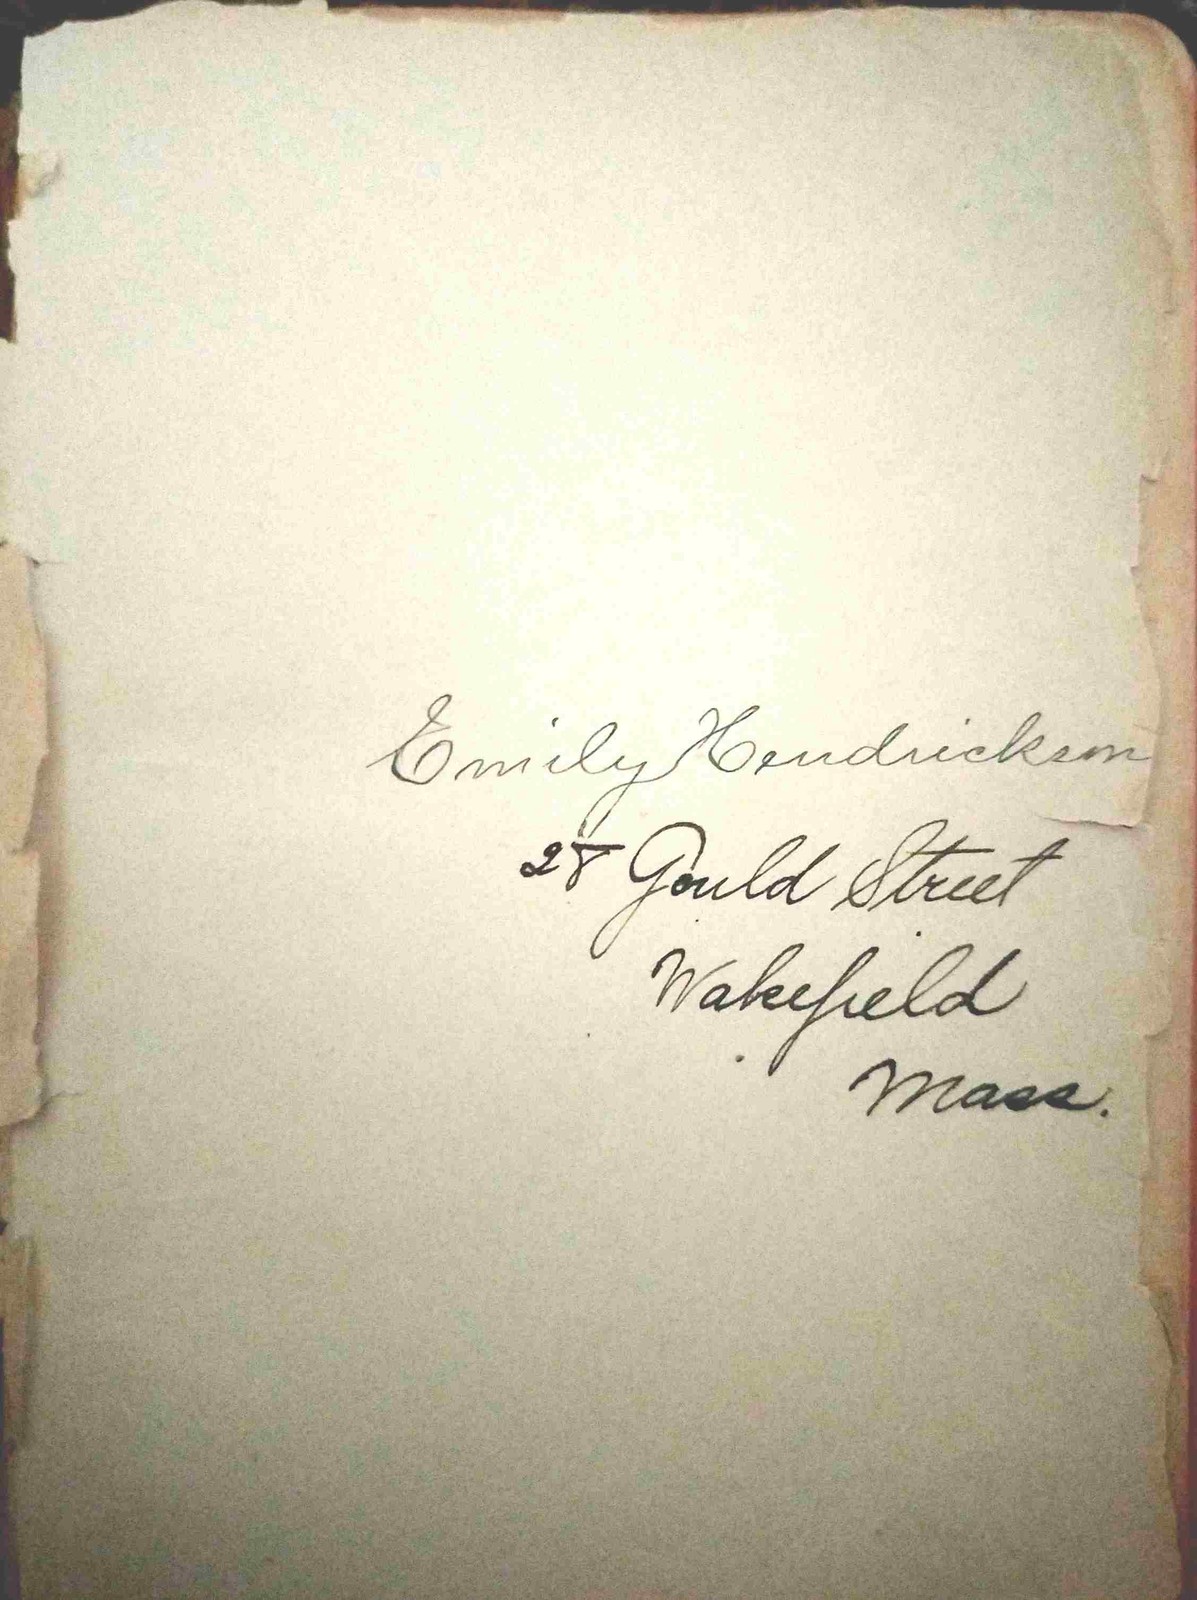 Emily Hendrickson
28 Gould Street
Wakefield
Mass.